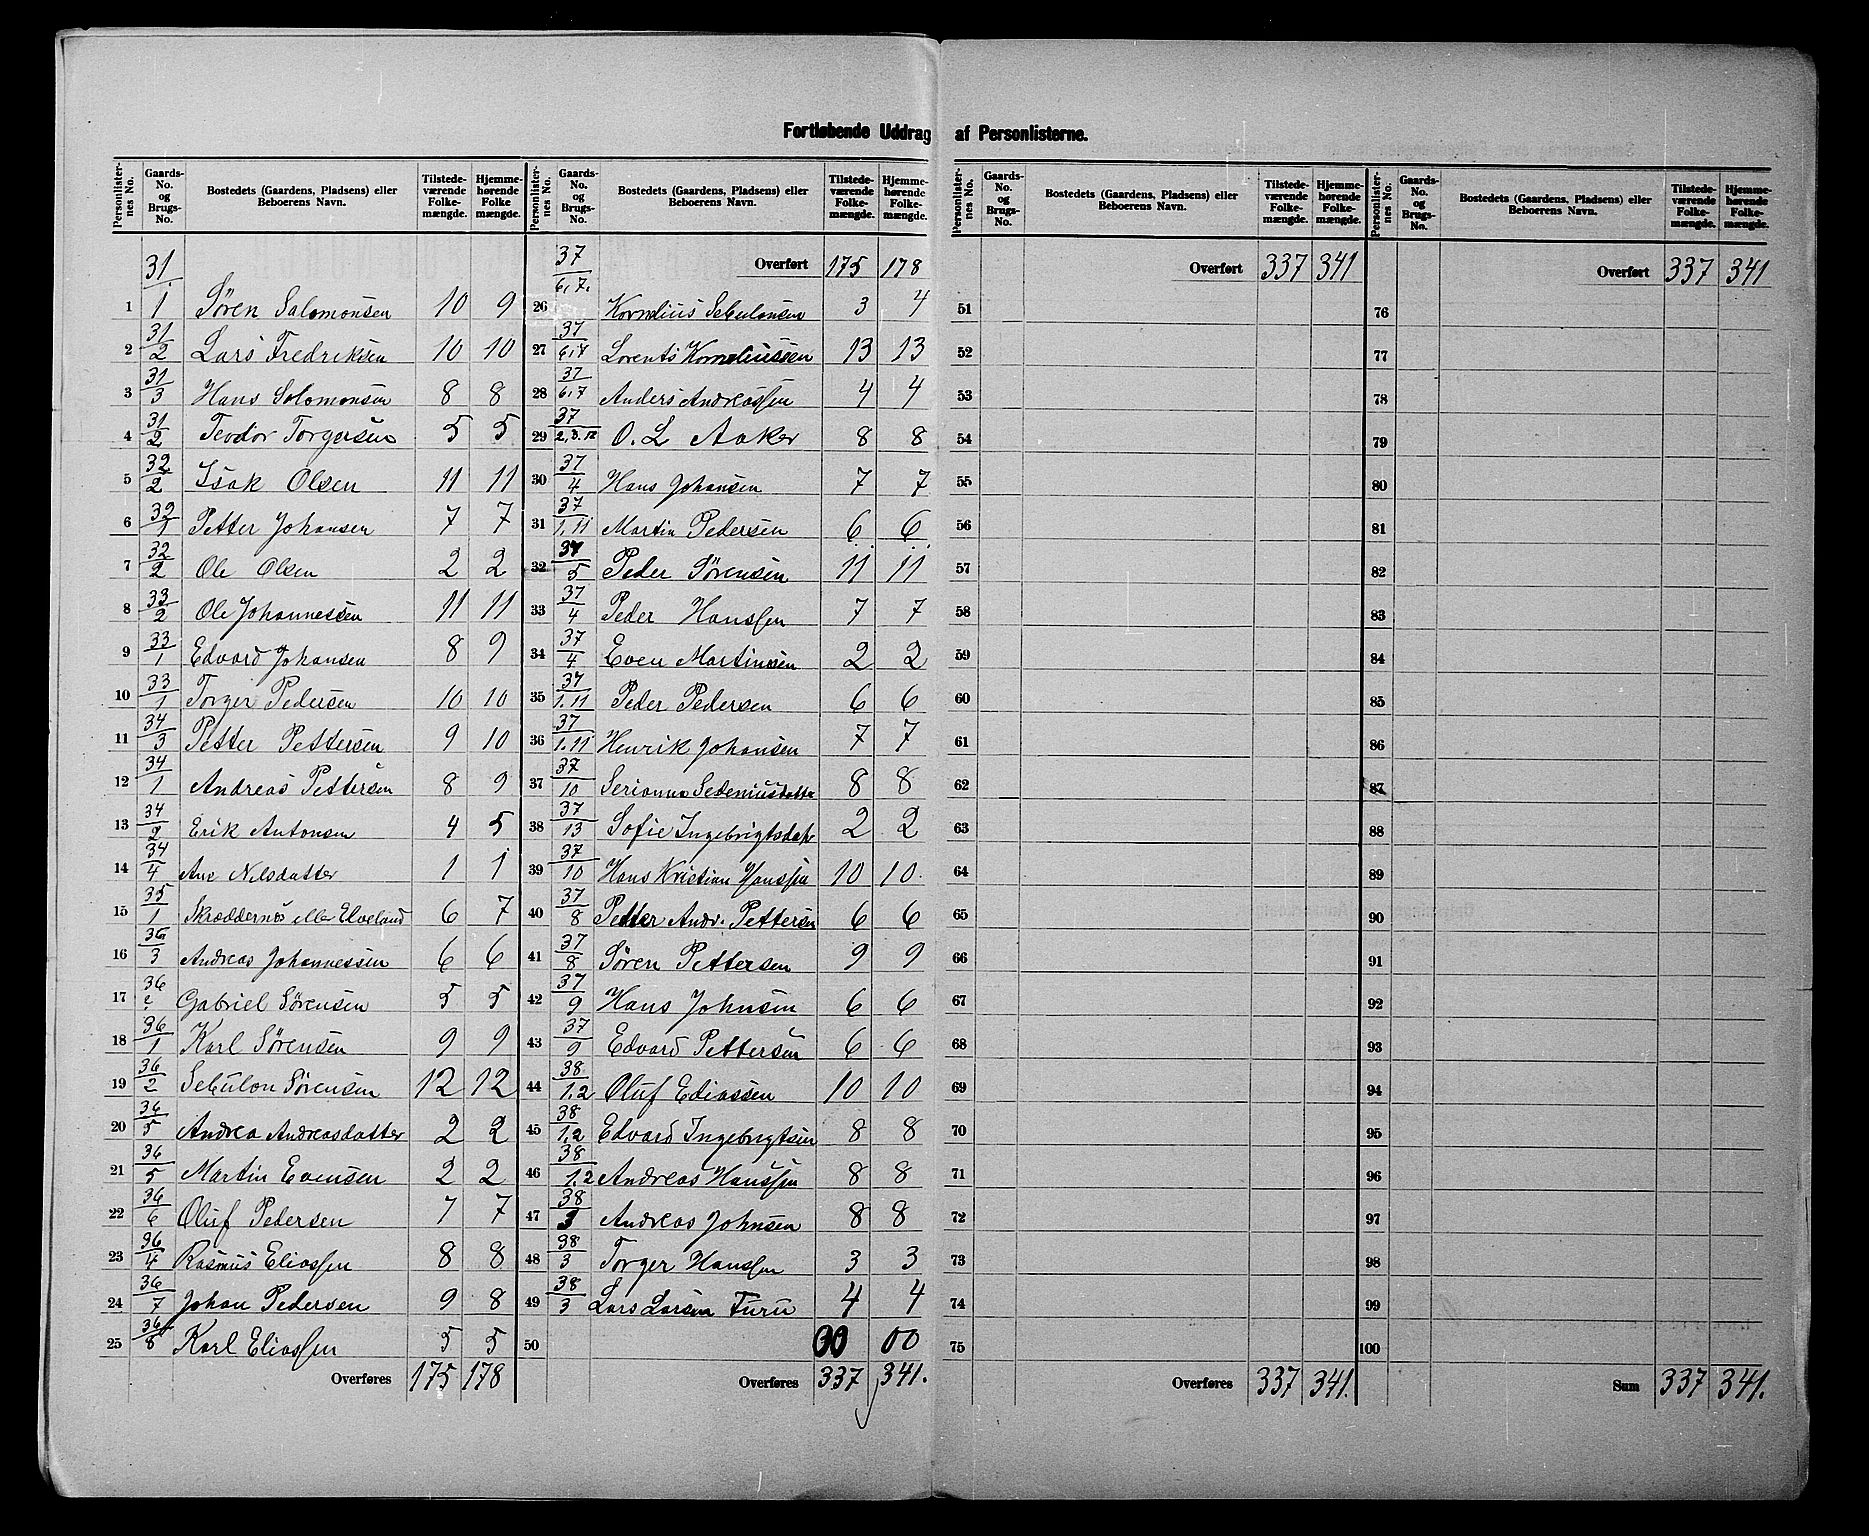 Fortløbende Uddrag af Personlisterne.
Personlisternes No. | Gaards-No. og Brugs-No. | Bostedets (Gaardens, Pladsens) eller Beboerens Navn. | Tilstedeværende Folkemængde. | Hjemmehørende Folkemængde.
1 31/1 Søren Salomonsen 10 9
2 31/2 Lars Fredriksen 10 10
3 31/3 Hans Solomonsen 8 8
4 31/2 Teodor Torgersen 5 5
5 32/2 Isak Olsen 11 11
6 32/1 Petter Johansen 7 7
7 32/2 Ole Olsen 2 2
8 33/2 Ole Johannessen 11 11
9 33/1 Edvard Johansen 8 9
10 33/1 Torger Pedersen 10 10
11 34/3 Petter Pettersen 9 10
12 34/1 Andreas Pettersen 8 9
13 34/2 Erik Antonsen 4 5
14 34/4 Ane Nilsdatter 1 1
15 35/1 Skræddernes eller Elveland 6 7
16 36/3 Andreas Johannessen 6 6
17 36/2 Gabriel Sørensen 5 5
18 36/1 Karl Sørensen 9 9
19 36/2 Sebulon Sørensen 12 12
20 36/5 Andrea Andreasdatter 2 2
21 36/5 Martin Evensen 2 2
22 36/6 Oluf Pedersen 7 7
23 36/4 Rasmus Eliassen 8 8
24 36/7 Johan Pedersen 9 8
25 36/8 Karl Eliassen 5 5
Overføres 175 178
Personlisternes No. | Gaards-No. og Brugs-No. | Bostedets (Gaardens, Pladsens) eller Beboerens Navn. | Tilstedeværende Folkemængde. | Hjemmehørende Folkemængde.
Overført 175 178
26 37/6,7. Kornelius Sebulonsen 3 4
27 37/6,7 Lorents Korneliussen 13 13
28 37/6,7 Anders Andreassen 4 4
29 37/2,3.12 O. L Aaker 8 8
30 37/4 Hans Johansen 7 7
31 37/1.11 Martin Pedersen 6 6
32 37/5 Peder Sørensen 11 11
33 37/4 Peder Hanssen 7 7
34 37/4 Even Martinsen 2 2
35 37/1.11 Peder Pedersen 6 6
36 37/1.11 Henrik Johansen 7 7
37 37/10 Serianna Sedeniusdatter 8 8
38 37/13 Sofie Ingebrigtsdatr 2 2
39 37/10 Hans Kristian Hanssen 10 10.
40 37/8 Petter Andr. Pettersen 6 6
41 37/8 Søren Pettersen 9 9
42 37/9 Hans Johnsen 6 6
43 37/9 Edvard Pettersen 6 6
44 38/1.2 Oluf Ediassen 10 10
45 38/1,2 Edvard Ingebrigtsen 8 8
46 38/1.2 Andreas Hanssen 8 8
47 38/3 Andreas Johnsen 8 8
48 38/3 Torger Hanssen 3 3
49 38/3 Lars Larsen Furu 4 4
50 00 00
Overføres 337 341.
Personlisternes No. | Gaards-No. og Brugs-No. | Bostedets (Gaardens, Pladsens) eller Beboerens Navn. | Tilstedeværende Folkemængde. | Hjemmehørende Folkemængde.
Overført 337 341
51
52
53
54
55
56
57
58
59
60
61
62
63
64
65
66
67
68
69
70
71
72
73
74
75
Overføres 337 341.
Personlisternes No. | Gaards-No. og Brugs-No. | Bostedets (Gaardens, Pladsens) eller Beboerens Navn. | Tilstedeværende Folkemængde. | Hjemmehørende Folkemængde.
Overført 337 341
76
77
78
79
80
81
82
83
84
85
86
87
88
89
90
91
92
93
94
95
96
97
98
99
100
Sum 337 341.